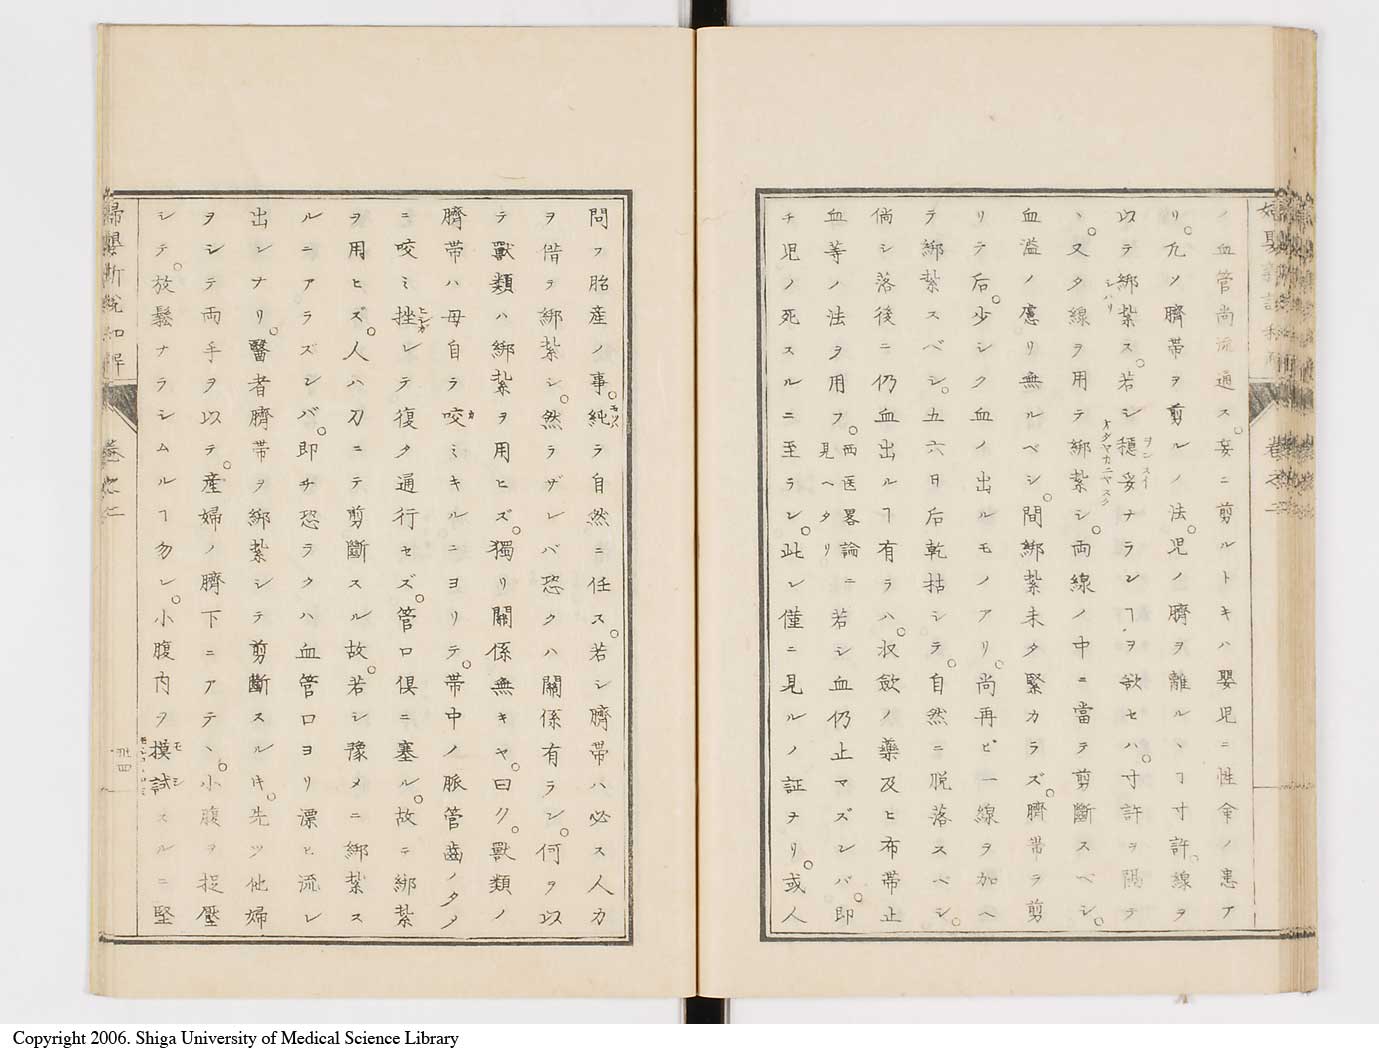 ノ血管尚流通ス。妄ニ剪ルトキハ嬰児ニ性命ノ患ア
リ。凢ソ臍帯ヲ剪ルノ法。児ノ臍ヲ離ルヽヿ寸許。線ヲ
以テ綁紮ス。若シ穏妥ナランヿヲ欲セハ。寸許ヲ隔テ
シハリ
ヲンスイ
オダヤカニヤスク
ヽ。又タ線ヲ用テ綁紮シ。両線ノ中ニ當テ剪斷スベシ。
血溢ノ慮リ無ルベシ。間綁紮未タ緊カラズ。臍帯ヲ剪
リテ后。少シク血ノ出ルモノアリ。尚再ビ一線ヲ加ヘ
テ綁紮スベシ。五六日后乾枯シテ。自然ニ脱落スベシ。
倘シ落後ニ仍血出ルヿ有ラハ。収歛ノ藥及ヒ布帯止
血等ノ法ヲ用フ。西医畧論ニ見ヘタリ 若シ血仍止マズンバ。即
チ児ノ死スルニ至ラン。此レ僅ニ見ルノ証ナリ。或人
問フ胎産ノ事。純ラ自然ニ任ス。若シ臍帯ハ必ス人力
モツハ
ヲ借ヲ綁紮シ。然ラザレバ恐クハ關係有ラン。何ヲ以
テ獸類ハ綁紮ヲ用ヒズ。獨リ關係無キヤ。曰ク。獸類ノ
臍帯ハ母自ラ咬ミキルニヨリテ。帯中ノ脈管齒ノタメ
カ
ニ咬ミ挫レテ復タ通行セズ。管口倶ニ塞ル。故ニ綁紮
ヒシガ
ヲ用ヒズ。人ハ刀ニテ剪斷スル故。若シ豫メニ綁紮ス
ルニアラズンバ。即チ恐ラクハ血管口ヨリ漂ヒ流レ
出ンナリ。醫者臍帯ヲ綁紮シテ剪斷スルキ。先ツ他婦
ヲシテ両手ヲ以テ。産婦ノ臍下ニアテヽ。小腹ヲ捉壓
シテ。放鬆ナラシムルヿ勿レ。小腹内ヲ摸試スルニ堅
モシ
婦嬰新説和解
巻之二
卅四